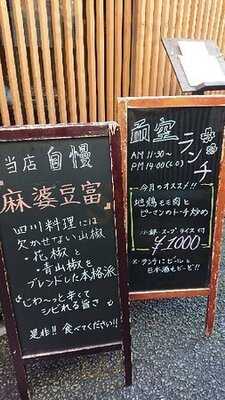 当店 自慢
麻婆豆富
四川料理には
欠かせない山椒
・花椒 と
・青山椒を
ブレンドした本格派
"じわ〜っと辛くて
シビれる旨さ"
是非!! 食べてください!!
ランチ
AM 11:30〜
PM 14:00 (L.O)
今月のオススメ!!
地鶏モモ肉と
ピーマンのトーチ炒め
小鉢・スープ・ライス付
¥1000
※ランチにビールと
日本酒もどーぞ!!